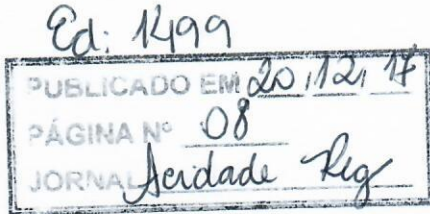 Ed: 1499
PUBLICADO EM 20, 12, 17
PÁGINA Nº 08
JORNAL Acidade Reg